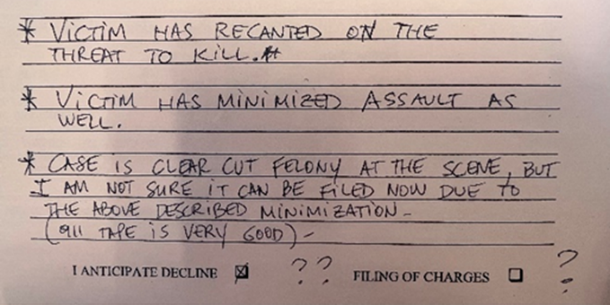 * VICTIM HAS RECANTED ON THE
THREAT TO KILL.
* VICTIM HAS MINIMIZED ASSAULT AS
WELL.
* CASE IS CLEAR CUT FELONY AT THE SCENE, BUT
I AM NOT SURE IT CAN BE FILED NOW DUE TO
THE ABOVE DESCRIBED MINIMIZATION -
(911 TAPE IS VERY GOOD) -
I ANTICIPATE DECLINE ☒ ?? FILING OF CHARGES ☐ ?